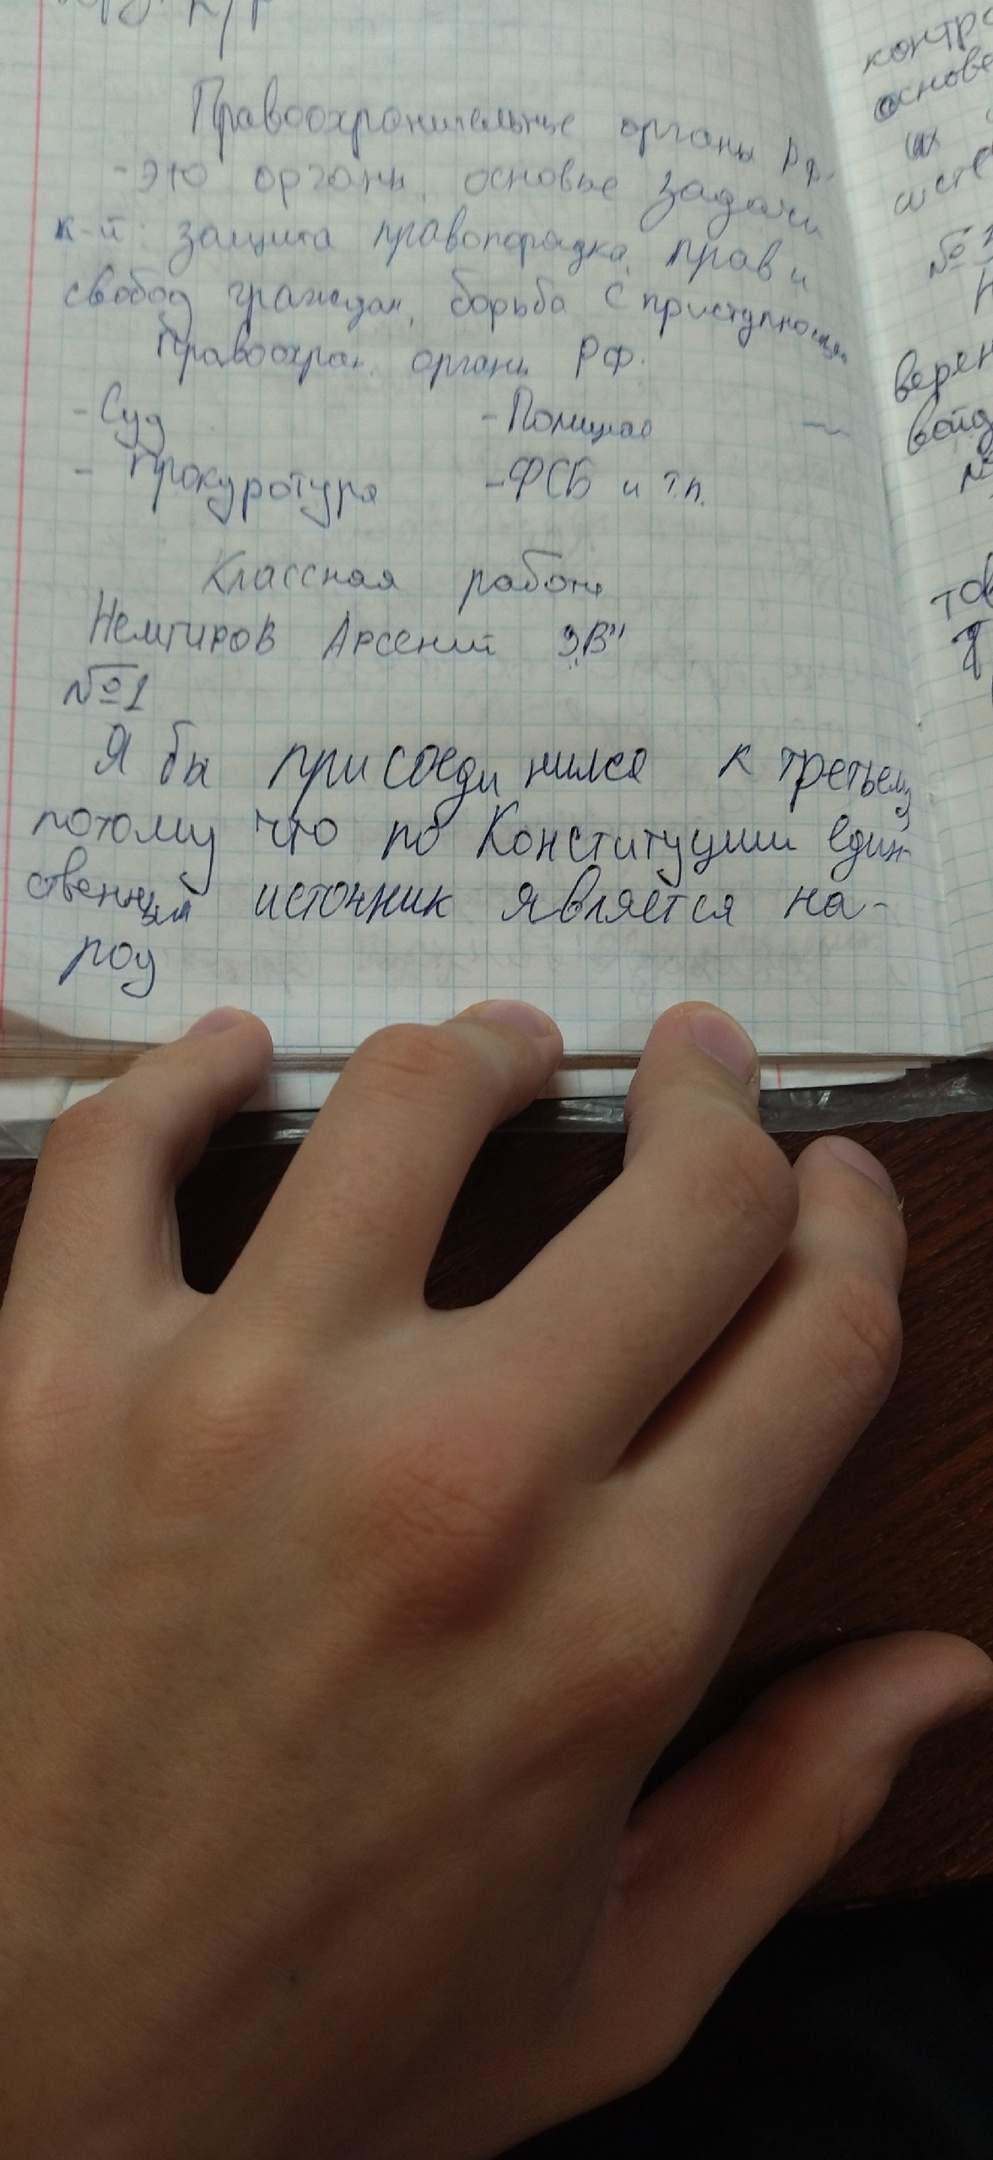 Правоохронительные органы РФ.
- это органы, основые задачи
к-й: защита правопорядка, прав и
свобод граждан, борьба с приступностью
Правоохран. органы РФ.
- Суд - Полицая
- Прокуротура - ФСБ и т.п.
Классная работа
Немтиров Арсений "9В"
№1
Я бы присоединился к третьему
потому что по Конституции един-
ственный источник является на-
род
контро
основе
их
систе
№
верен
войд
№
тов